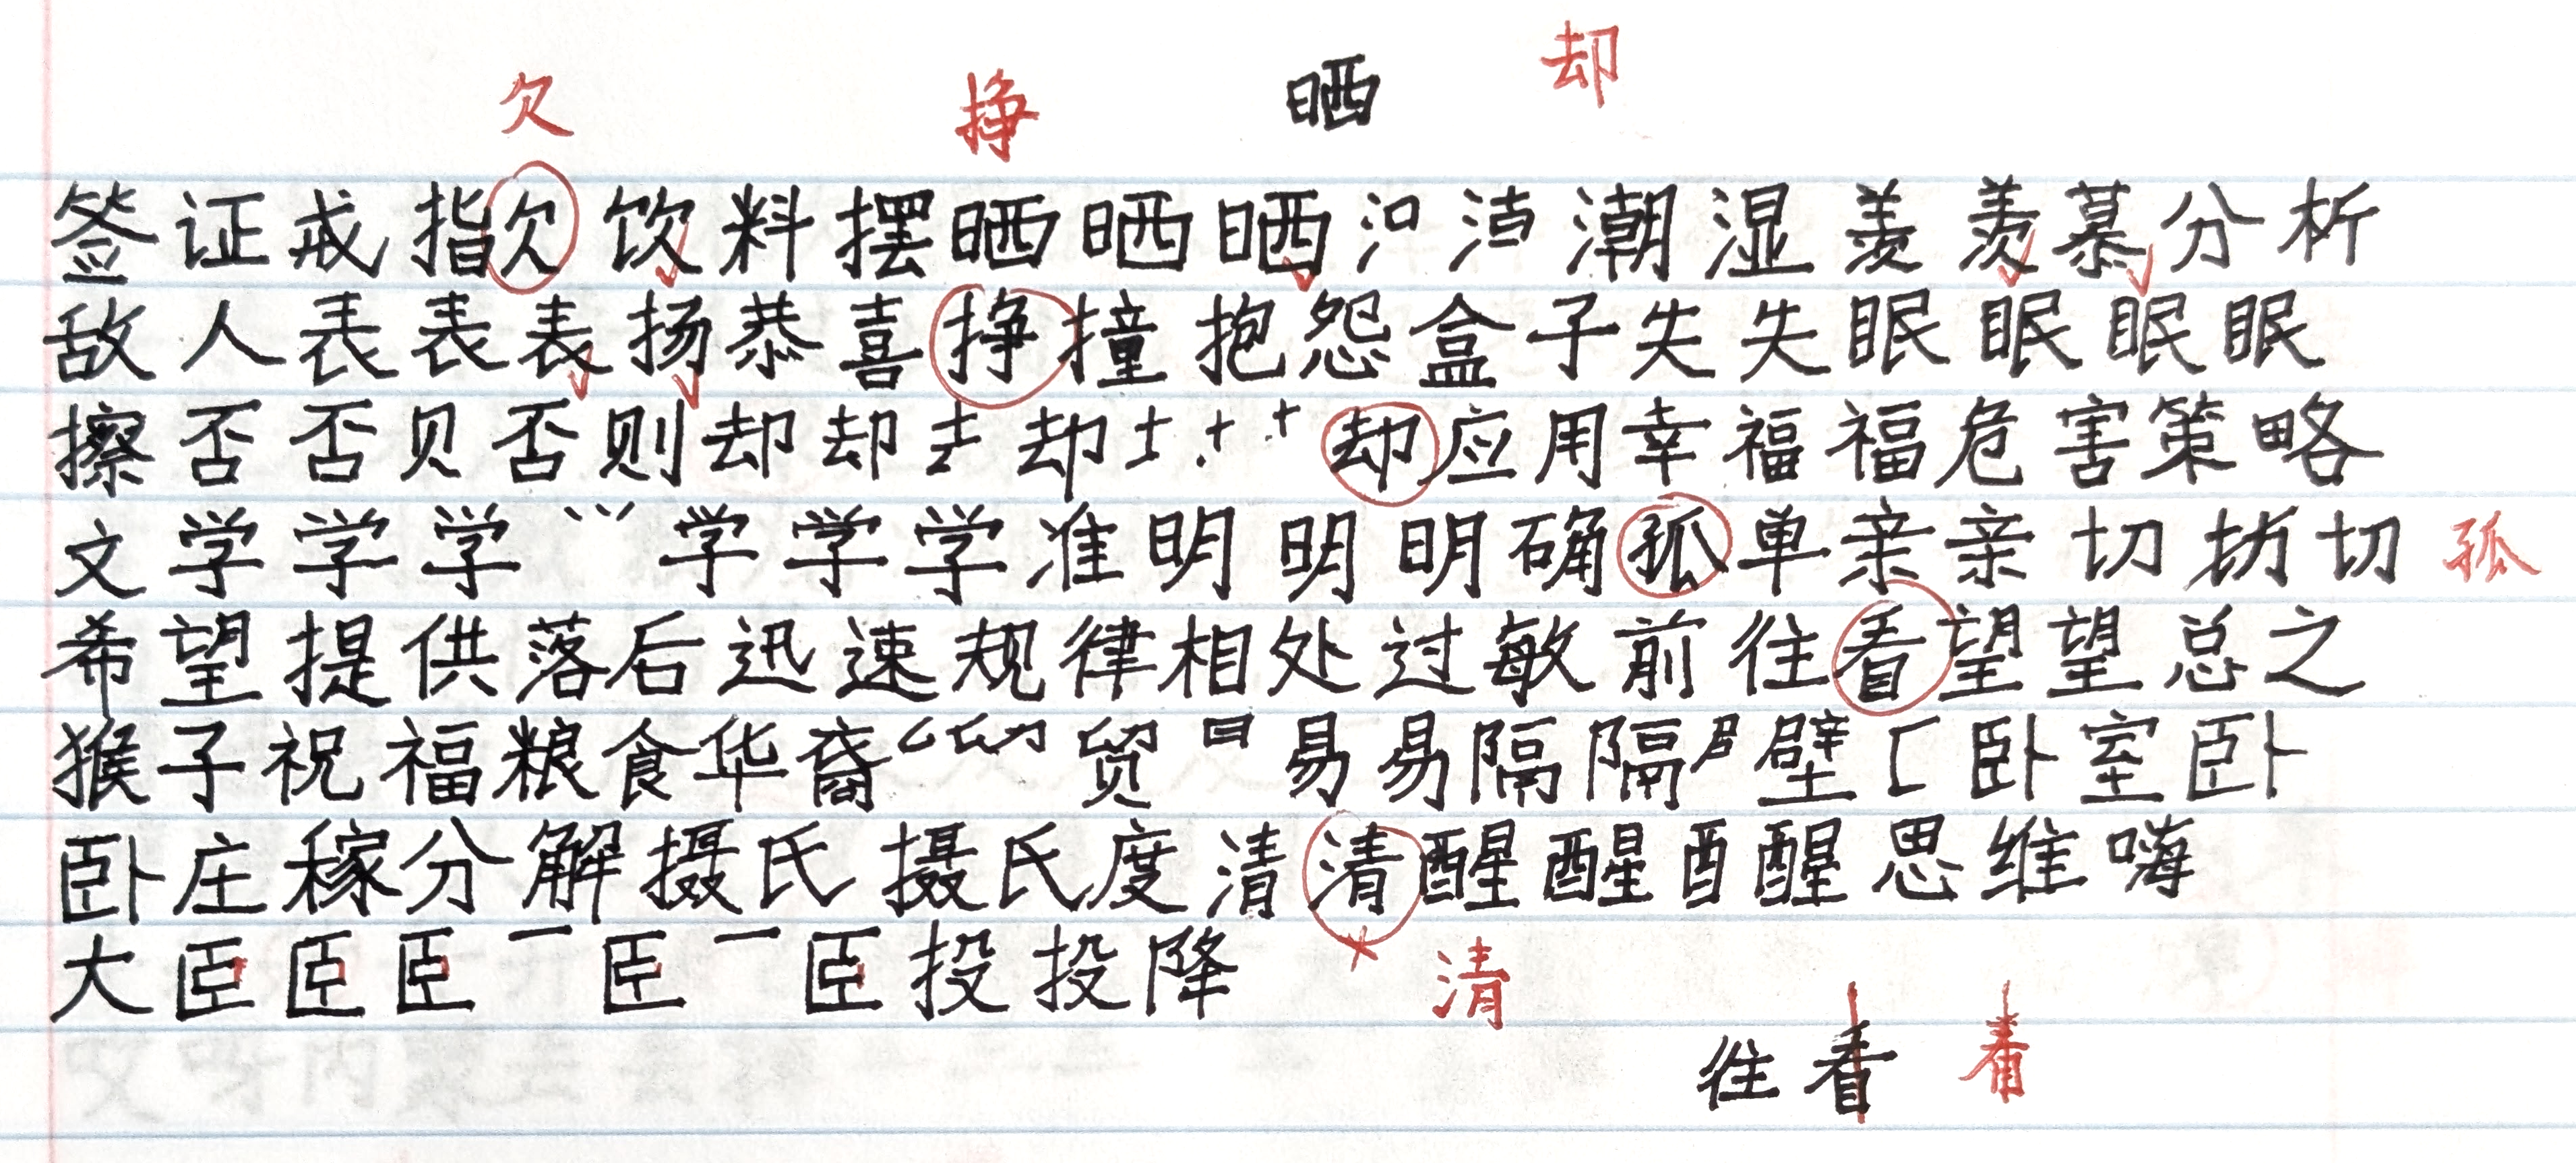 欠 挣 晒 却
签证戒指欠饮料摆晒晒晒潮湿羡羡慕分析
敌人表表表扬恭喜挣撞抱怨盒子失失眠眠眠眠
擦否否见否则却却却却应用幸福福危害策略
文学学学学学学准明明明确孤单亲亲切切 孤
希望提供落后迅速规律相处过敏前往看望望总之
猴子祝福粮食华裔贸易易隔隔壁卧室卧
卧庄稼分解摄氏摄氏度清清醒醒酉醒思维嗨
大臣臣臣臣臣投投降 清
往看 看